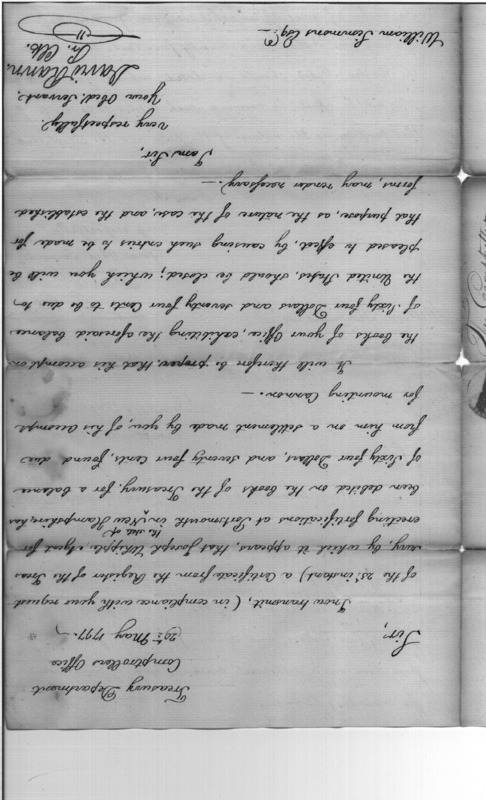 Treasury Department
Comptrollers Office
29th May 1797.
Sir,
I now transmit, (in compliance with your request
of the 25th instant) a Certificate from the Register of the Treas
ury, by which it appears, that Joseph Whipple Agent for
erecting fortifications at Portsmouth in the state of New Hampshire, has
been debited on the books of the Treasury, for a balance
of Sixty four Dollars, and seventy four Cents, found due
from him on a settlement made by you, of his Accompt
for mounting Cannon.—
It will therefore be proper, that his accompt on
the books of your Office, exhibiting the aforesaid balance
of Sixty four Dollars and seventy four Cents to be due to
the United States, should be closed; which you will be
pleased to effect, by causing such entries to be made for
that purpose, as the nature of the case, and the established
forms, may render necessary.—
I am Sir,
very respectfully
Your Obed. Servant.
David Rawn,
Pr. Clk.
William Simmons Esqr.